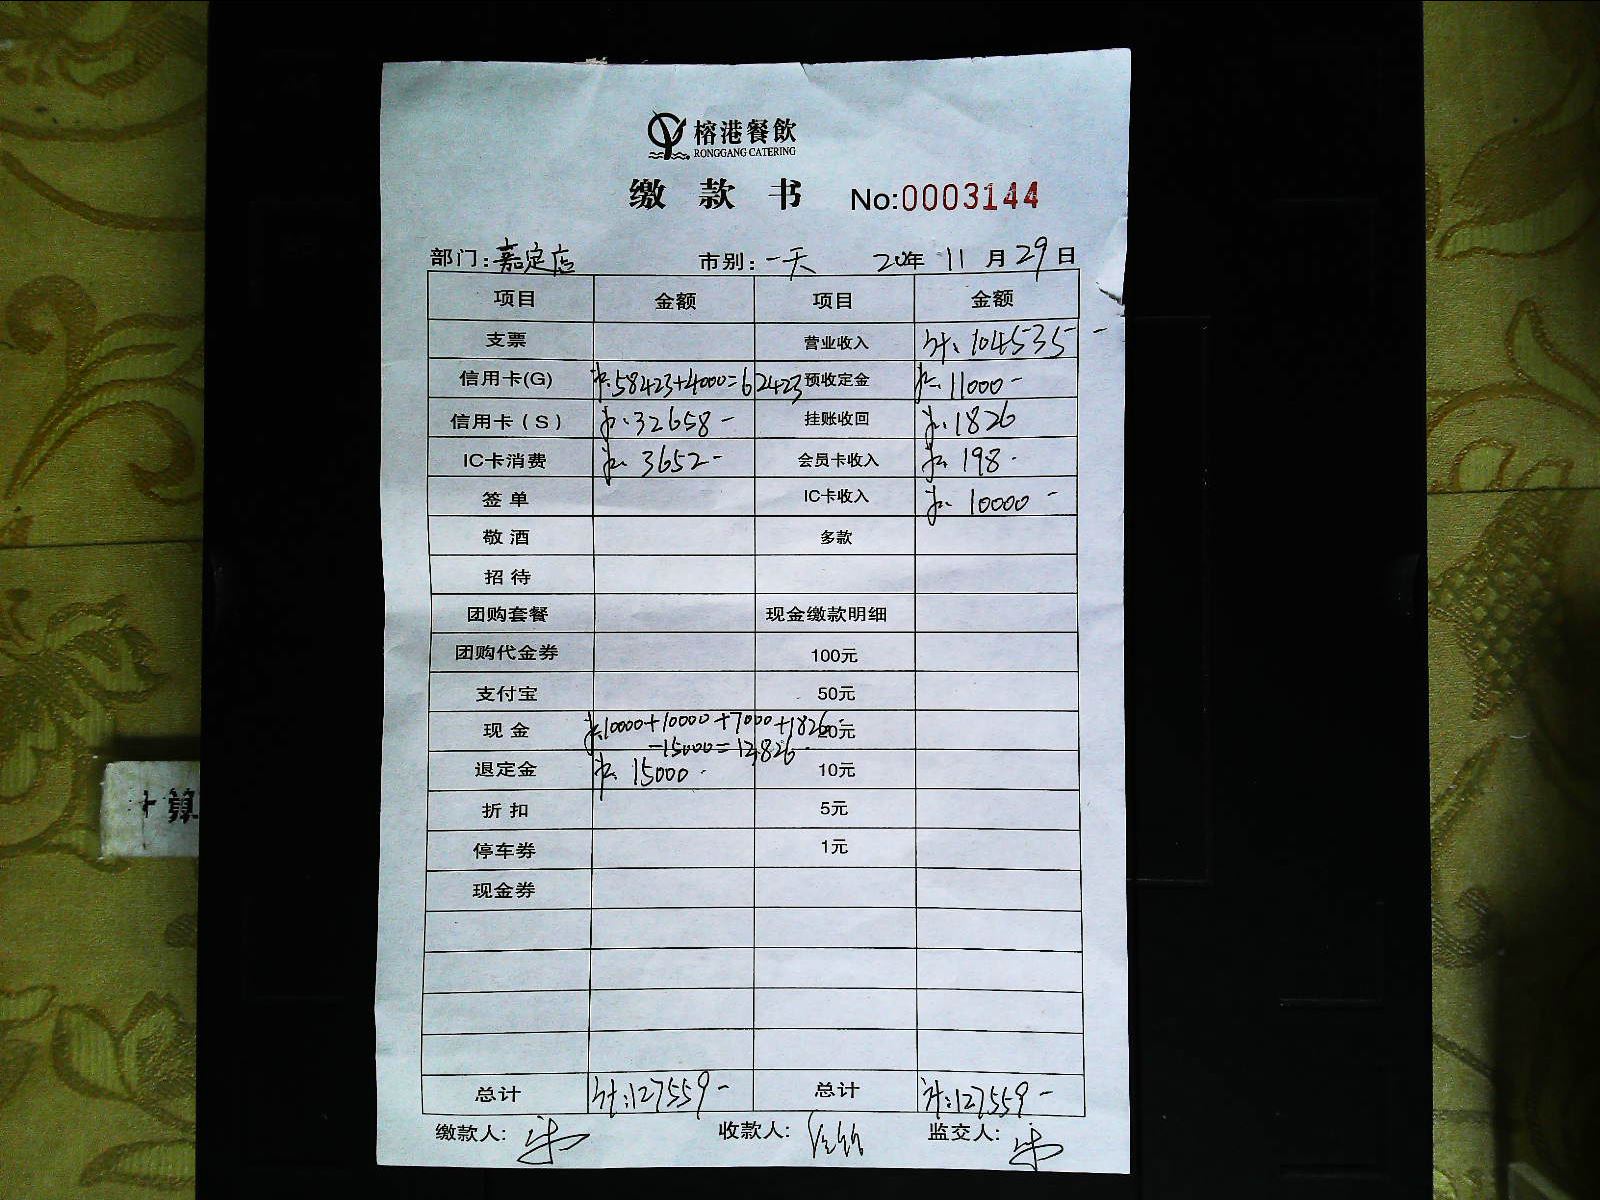 榕港餐飲
RONGGANG CATERING
缴款书 No:0003144
部门:嘉定店 市别:一天 20年 11月29日
项目 金额 项目 金额
支票 营业收入 计:104535-
信用卡(G) 58423+4000=62423 预收定金 11000-
信用卡(S) 32658- 挂账收回 1826
IC卡消费 3652- 会员卡收入 198-
签单 IC卡收入 10000-
敬酒 多款
招待
团购套餐 现金缴款明细
团购代金券 100元
支付宝 50元
现金 10000+10000+7000+1826 20元
-15000=13826-
退定金 15000- 10元
折扣 5元
停车券 1元
现金券
总计 计:127559- 总计 计:127559-
缴款人: 收款人: 监交人:
十算